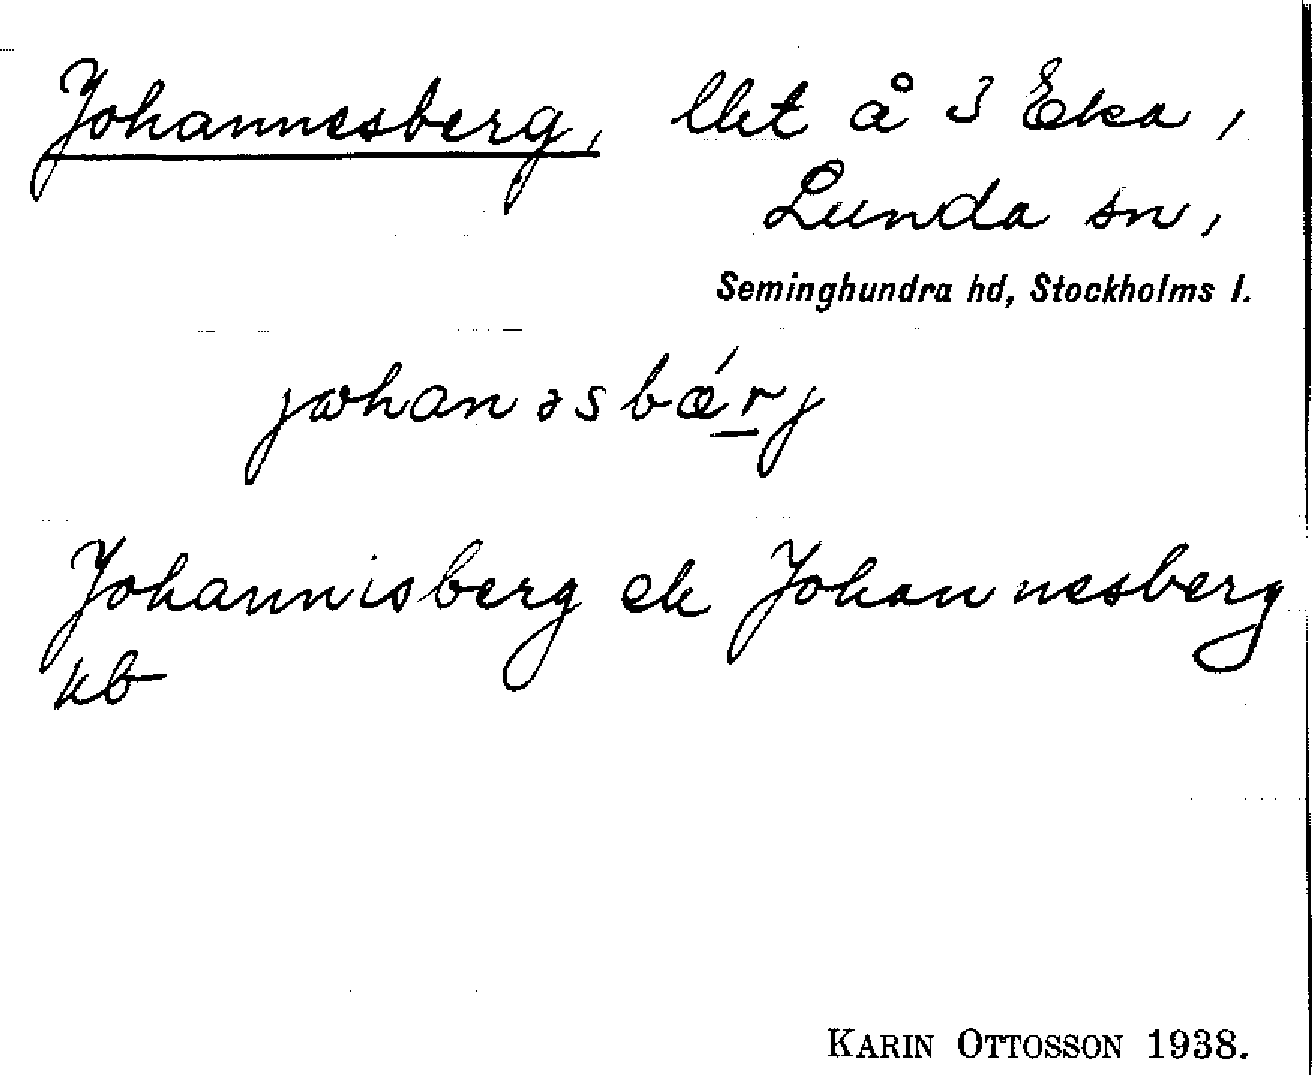 Johannesberg, lht å 3 Eka,
Lunda sn,
Seminghundra hd, Stockholms l.
jωhanəsbǽrj
Johannisberg ek Johannesberg
kb
KARIN OTTOSSON 1938.